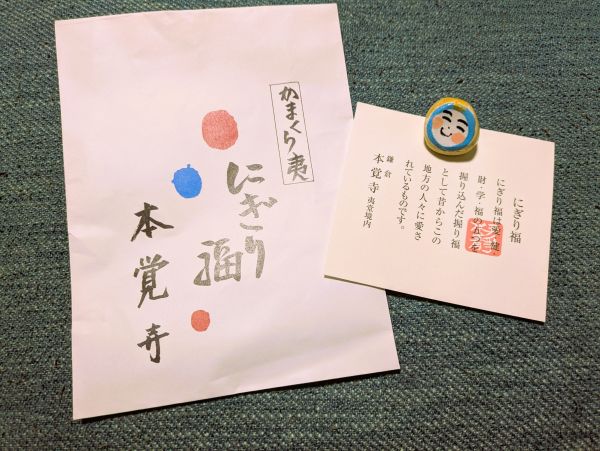 かまくら夷
にぎり福
本覚寺
にぎり福
にぎり福は愛・健・
財・学・福の五つを
握り込んだ握り福
として昔からこの
地方の人々に愛さ
れているものです。
鎌倉
本覚寺 夷堂境内